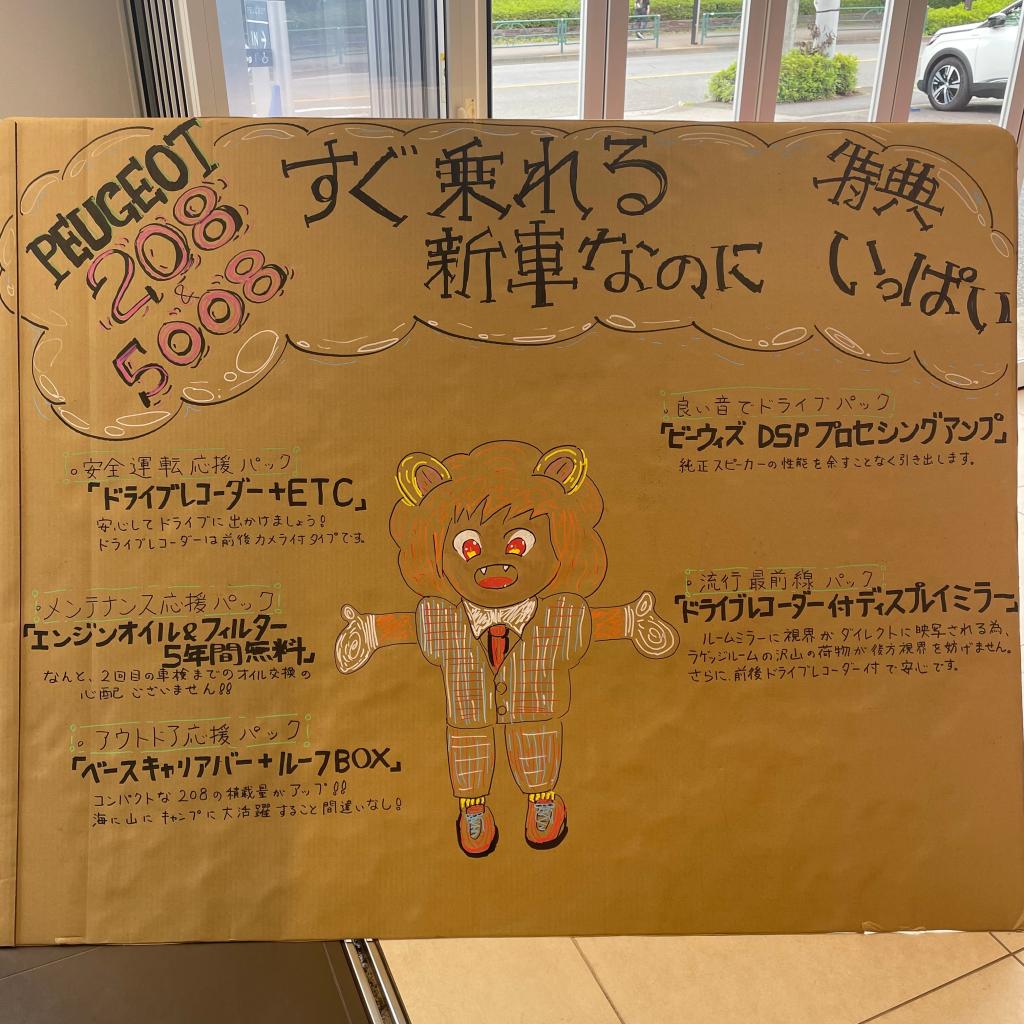 PEUGEOT
208
&
5008
すぐ乗れる
新車なのに
特典
いっぱい
。安全運転応援パック
「ドライブレコーダー+ETC」
安心してドライブに出かけましょう!
ドライブレコーダーは前後カメラ付タイプです。
メンテナンス応援パック
「エンジンオイル&フィルター
5年間無料」
なんと、2回目の車検までのオイル交換の
心配ございません!!
。アウトドア応援パック
「ベースキャリアバー+ルーフBOX」
コンパクトな208の積載量がアップ!!
海に山にキャンプに大活躍すること間違いなし!
。良い音でドライブパック
「ビーウィズ DSPプロセシングアンプ」
純正スピーカーの性能を余すことなく引き出します。
。流行最前線パック
「ドライブレコーダー付ディスプレイミラー」
ルームミラーに視界がダイレクトに映写される為、
ラゲッジルームの沢山の荷物が後方視界を妨げません。
さらに、前後ドライブレコーダー付で安心です。